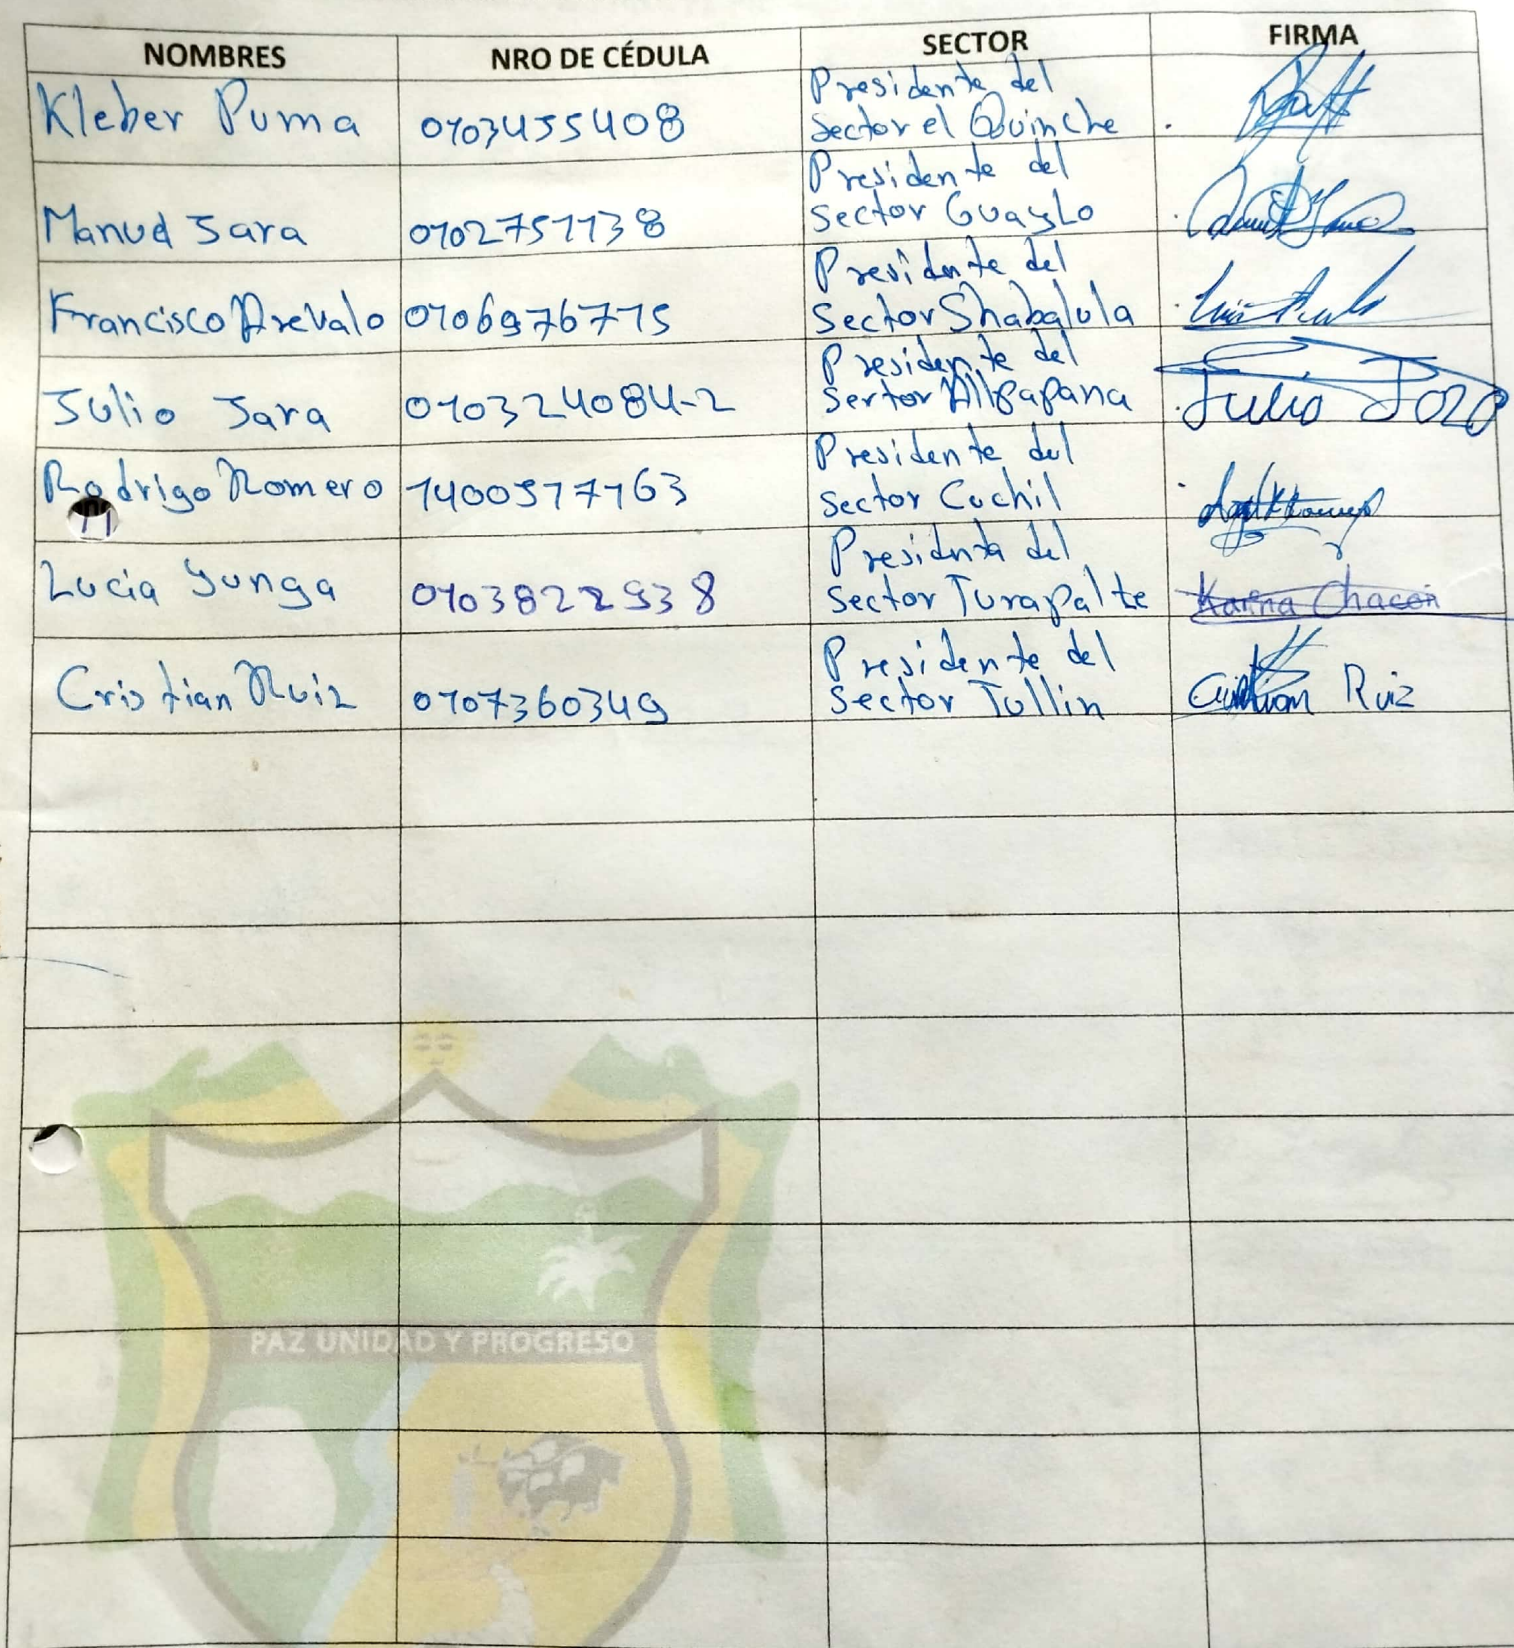 NOMBRES NRO DE CÉDULA SECTOR FIRMA
Kleber Puma 0103455408 Presidente del
Sector el Quinche
Manuel Jara 0102751138 Presidente del
Sector Guaylo
Francisco Arevalo 0106976715 Presidente del
Sector Shabalula
Julio Jara 010324084-2 Presidente del
Sertor Allpapana Julio Jara
Rodrigo Romero 1400577163 Presidente del
Sector Cochil
Lucia Yunga 0103822938 Presidenta del
Sector Turapalte Karina Chacon
Cristian Ruiz 0107360349 Presidente del
Sector Tullin Cristian Ruiz
PAZ UNIDAD Y PROGRESO